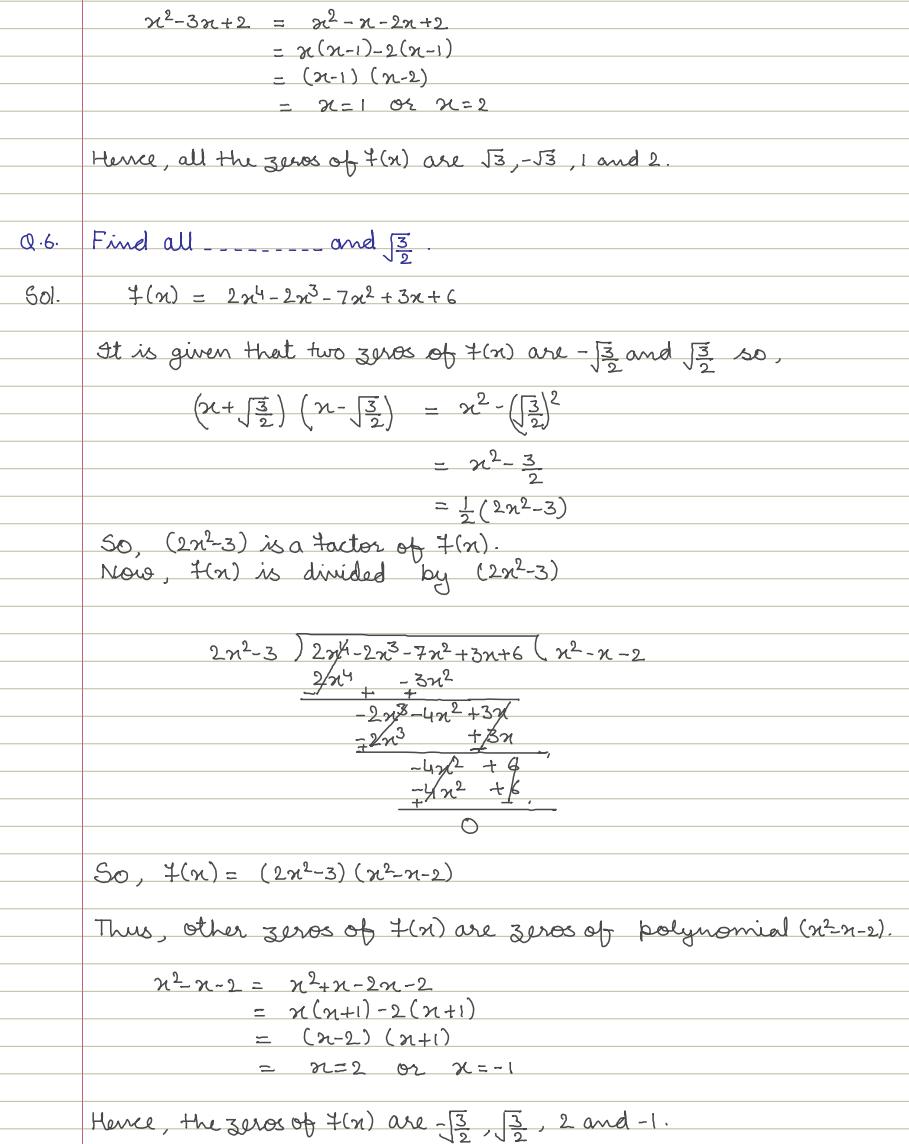 x²-3x+2 = x²-x-2x+2
= x(x-1)-2(x-1)
= (x-1) (x-2)
= x=1 or x=2
Hence, all the zeros of f(x) are √3, -√3, 1 and 2.
Q.6. Find all --------- and √(3/2).
Sol. f(x) = 2x⁴-2x³-7x²+3x+6
It is given that two zeros of f(x) are -√(3/2) and √(3/2) so,
(x+√(3/2)) (x-√(3/2)) = x²-(√(3/2))²
= x²-3/2
= 1/2(2x²-3)
So, (2x²-3) is a factor of f(x).
Now, f(x) is divided by (2x²-3)
2x²-3 ) 2x⁴-2x³-7x²+3x+6 ( x²-x-2
2x⁴ -3x²
- + +
-2x³-4x²+3x
-2x³ +3x
+ -
-4x² + 6
-4x² +6
+ -
0
So, f(x) = (2x²-3) (x²-x-2)
Thus, other zeros of f(x) are zeros of polynomial (x²-x-2).
x²-x-2 = x²+x-2x-2
= x(x+1)-2(x+1)
= (x-2) (x+1)
= x=2 or x=-1
Hence, the zeros of f(x) are -√(3/2), √(3/2), 2 and -1.